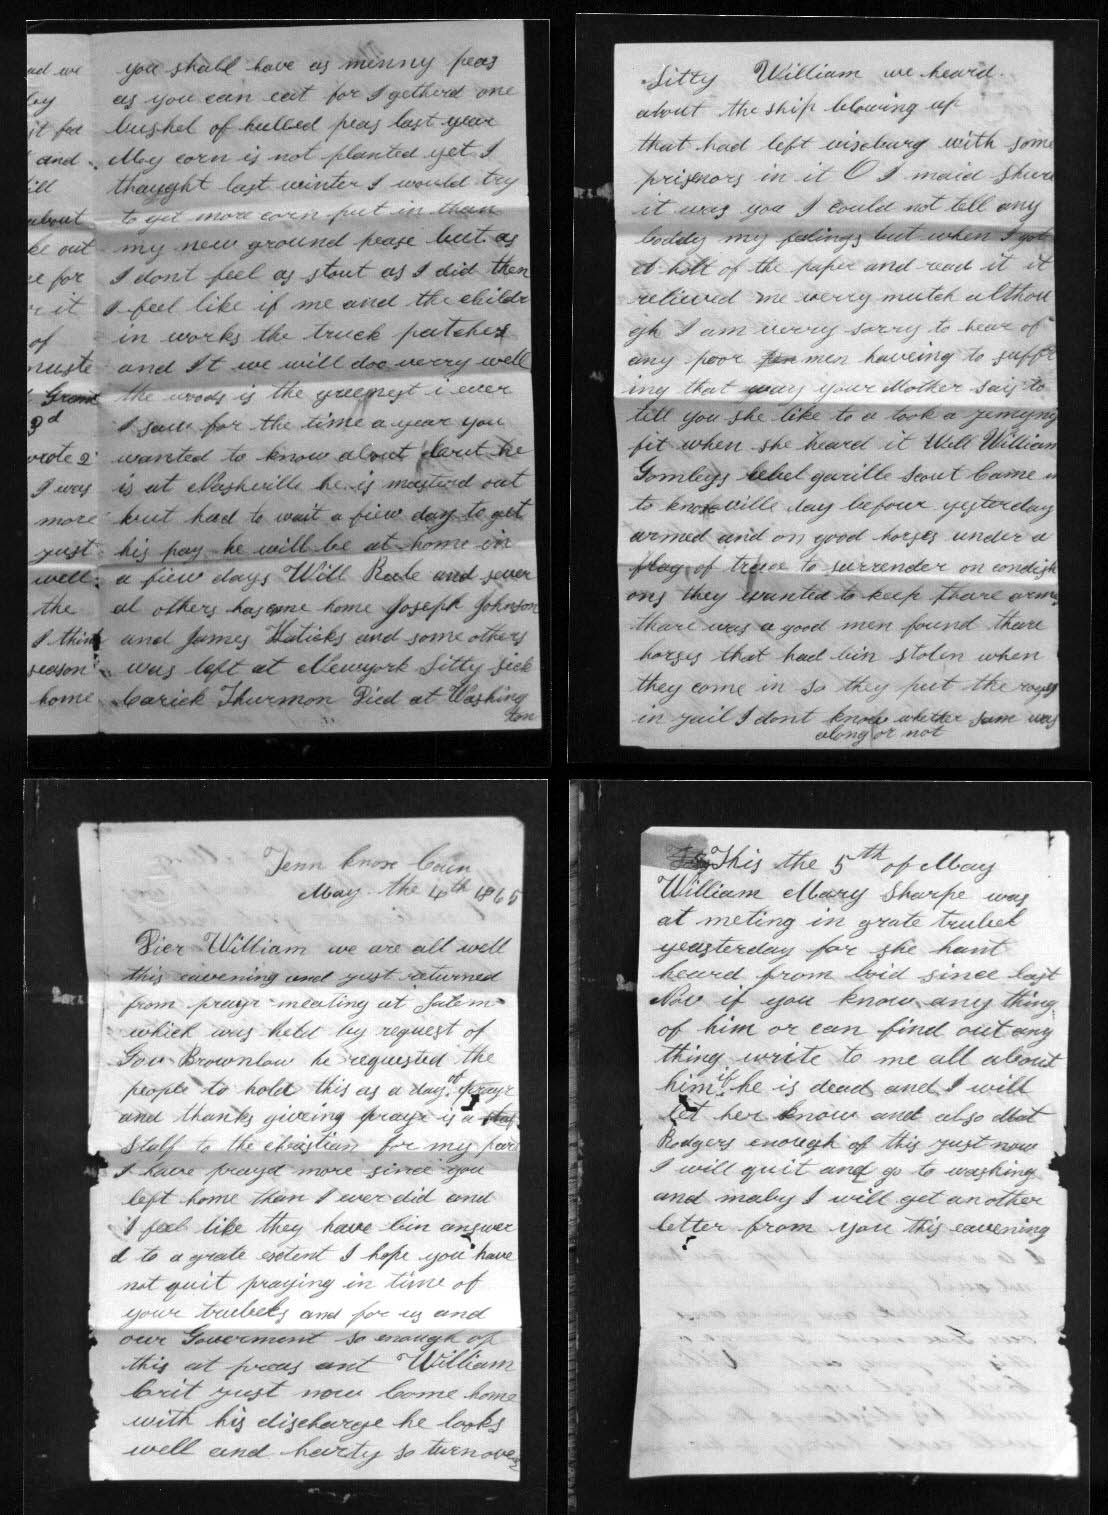 ad we
ley
it fed
and
ill
about
ke out
e for
it
of
nuste
Grant
3d
wrote 2
I was
more
just
well
the
I think
season
home
you shall have as minny peas
as you can eat for I getherd one
bushel of hulled peas last year
My corn is not planted yet I
thought last winter I would try
to get more corn put in than
my new ground pease but as
I dont feel as stout as I did then
I feel like if me and the childr
in works the truck patches
and It we will doo verry well
the woods is the greenest i ever
I saw for the time a year you
wanted to know about he
is at Nashville he is mustird out
but had to wait a fiew day to get
his pay he will be at home in
a fiew days Will and sever
al others has home Joseph Johnson
and James and some others
was left at Newyork Sitty sick
Carick Thurmon Died at Washing
ton
Sitty William we heard
about the ship blowing up
that had left visburg with some
prisnors in it O I maid shure
it was you I could not tell any
boddy my feelings but when I got
a holt of the paper and read it it
relieved me verry mutch althou
gh I am verry sorry to hear of
any poor men haveing to suffr
ing that way your Mother sais to
tell you she like to a took a
fit when she heard it Well William
rebel garille scout Came in
to knoxville day befour yesterday
armed and on good horses under a
flag of truce to surrender on condish
ons they wanted to keep thare arms
thare was a good men found thare
horses that had bin stolen when
they come in so they put the
in jail I dont know whether Sam was
along or not
Tenn knox Coun
May the 4th 1865
Dier William we are all well
this eavening and just returned
from prayr meating at Salem
which was held by request of
Gov Brownlow he requested the
people to hold this as a day of prayr
and thanks giveing prayr is a
Stalf to the christian for my part
I have prayd more since you
left home than I ever did and
I feel like they have bin answer
d to a grate extent I hope you have
not quit praying in time of
your trubels and for us and
our Goverment so enough of
this at preas ant William
Crit just now Come home
with his discharge he looks
well and harty so turn over
This the 5th of May
William Mary Sharpe was
at meting in grate trubel
yeasterday for she hant
heard from since last
Nov if you know any thing
of him or can find out any
thing write to me all about
him if he is dead and I will
let her know and also
Rodgers enough of this just now
I will quit and go to washing
and maby I will get another
letter from you this eavening